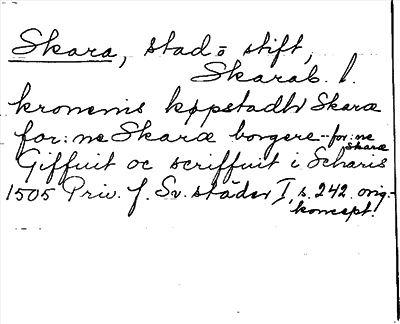 Skara, stad o stift,
Skarab. l.
kronenis køpstadh Skaræ
for:ne Skaræ borgere -- for:ne Skaræ
Giffuit oc scriffuit i Scharis
1505 Priv. f. Sv. städer I, s. 242. orig.-
koncept.